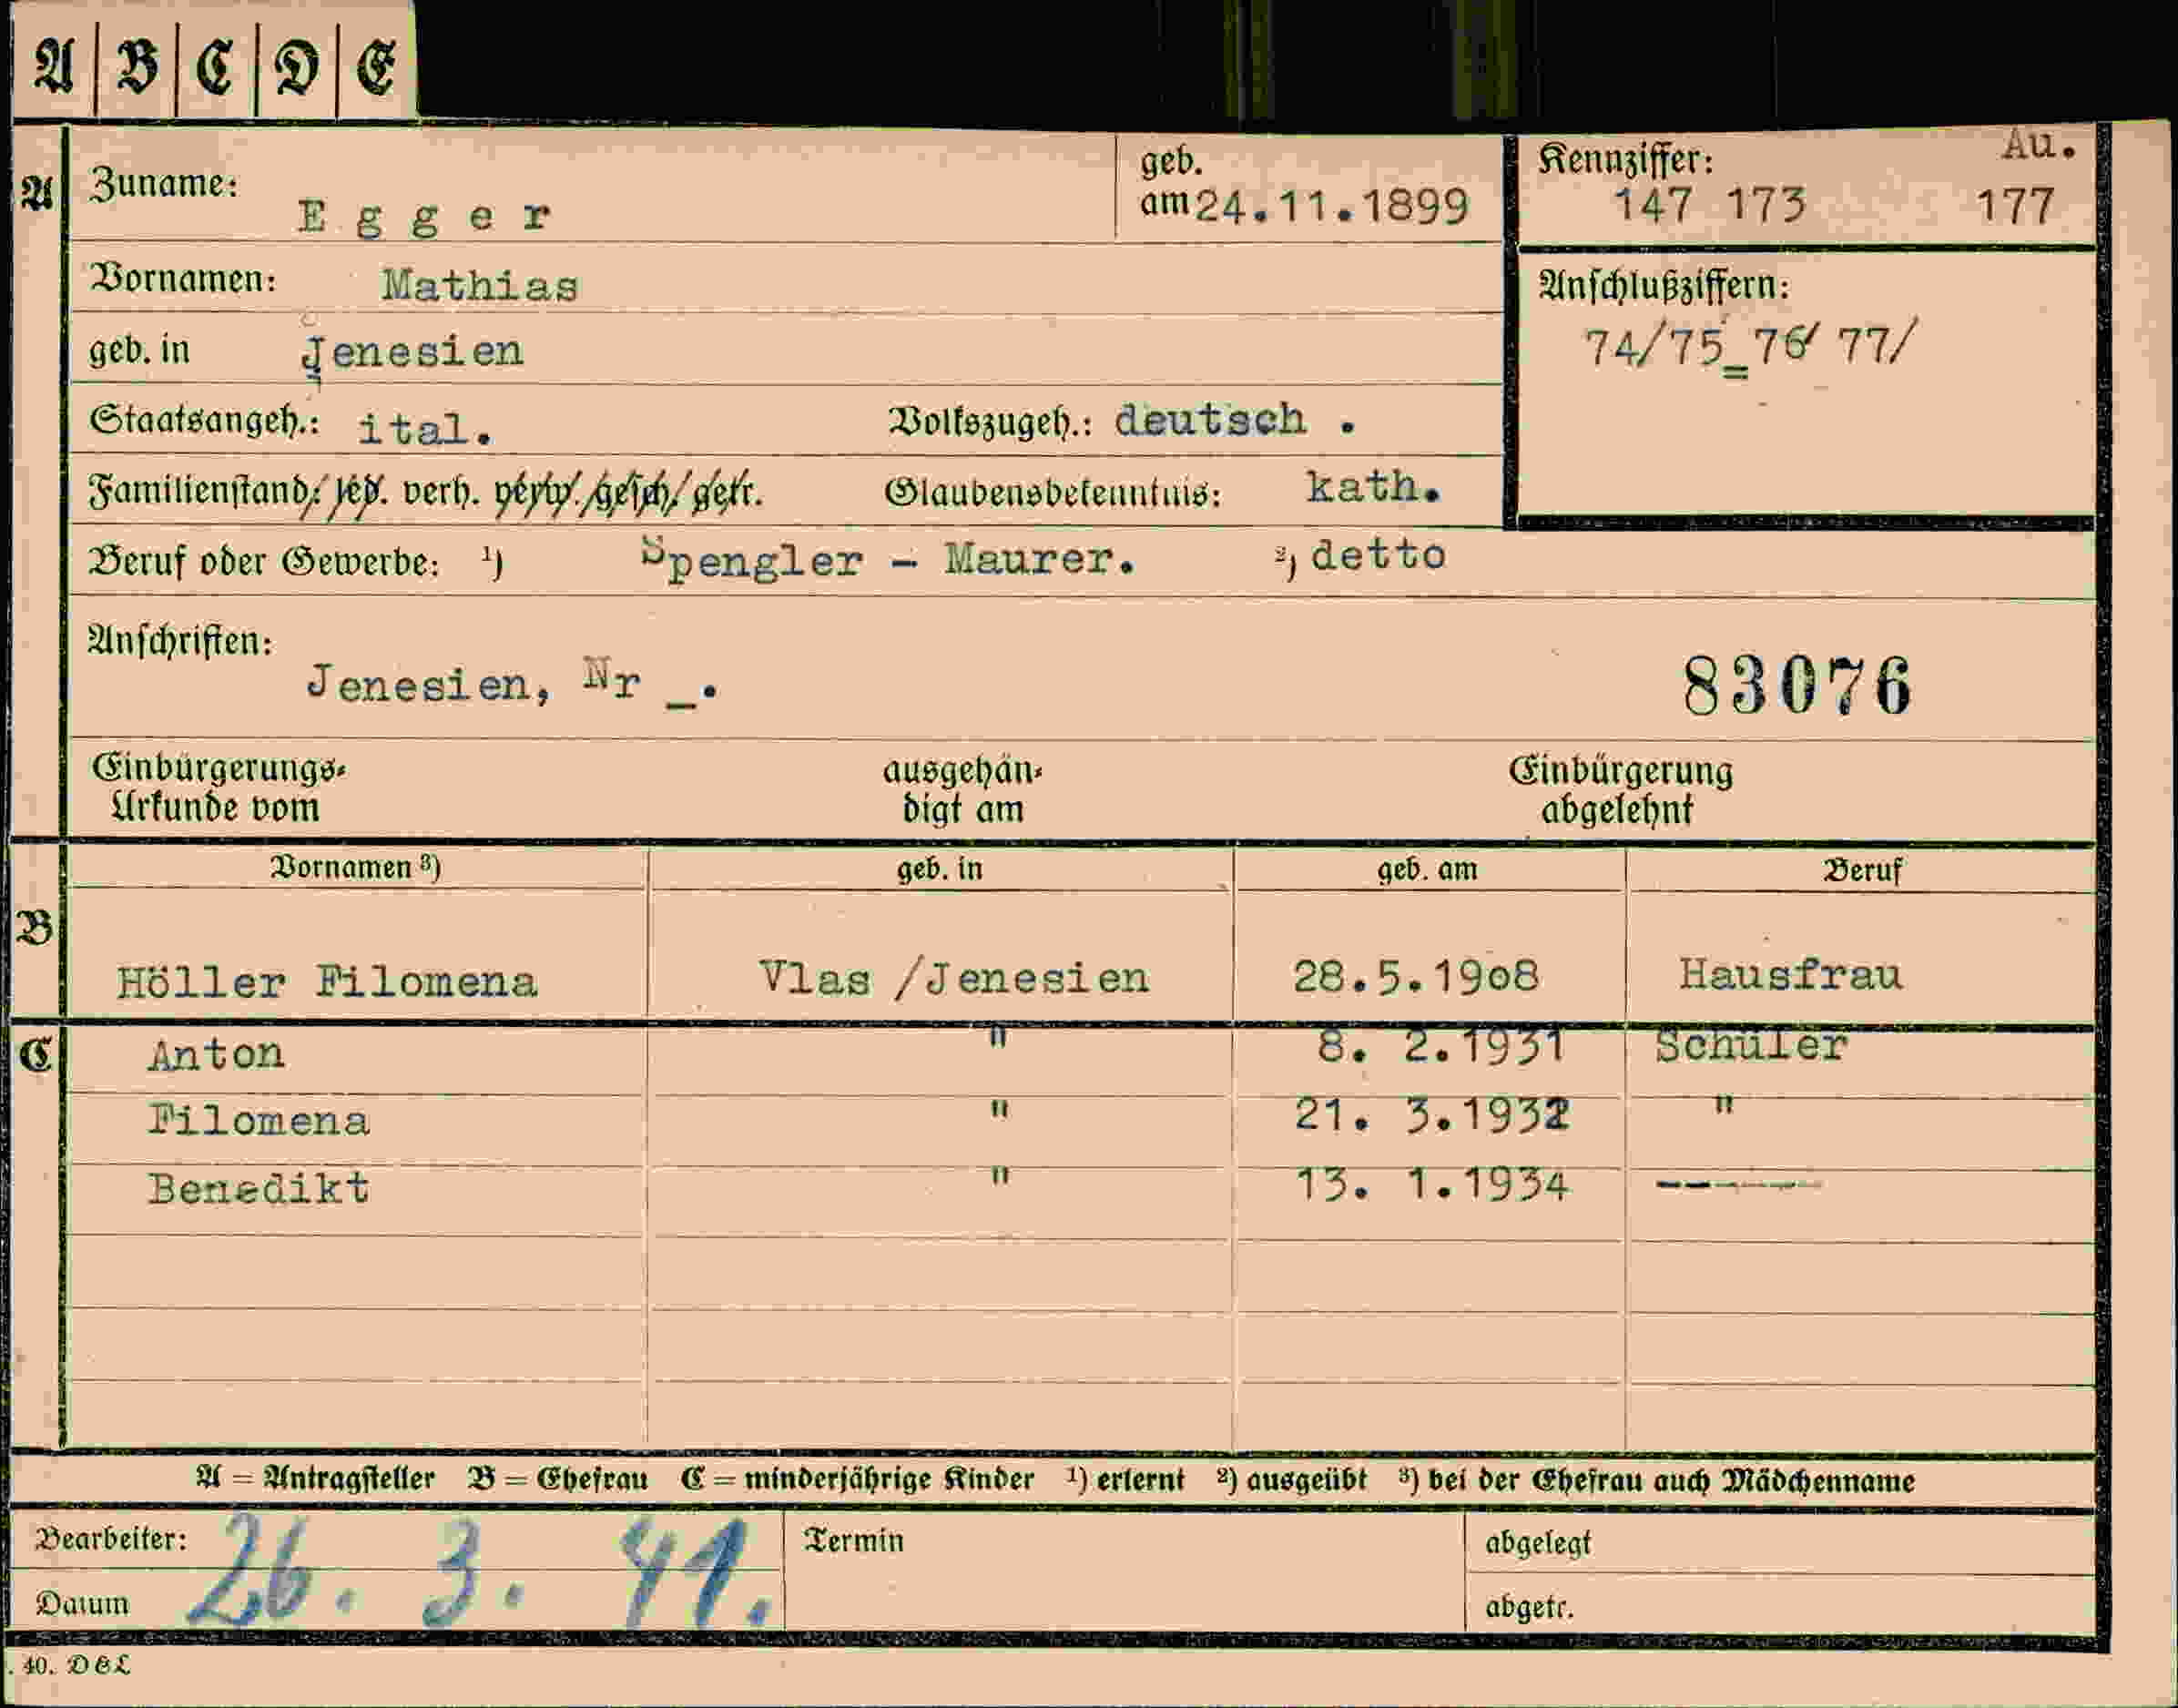 A | B | C | D | E
A Zuname: E g g e r geb. am 24.11.1899 Kennziffer: Au.
147 173 177
Vornamen: Mathias
geb. in Jenesien
Anschlußziffern:
74/75 = 76/ 77/
Staatsangeh.: ital. Volkszugeh.: deutsch .
Familienstand: led. verh. verw. gesch. getr. Glaubensbekenntnis: kath.
Beruf oder Gewerbe: 1) Spengler - Maurer. 2) detto
Anschriften:
Jenesien, Nr _. 83076
Einbürgerungs- ausgehän- Einbürgerung
Urkunde vom digt am abgelehnt
Vornamen 3) geb. in geb. am Beruf
B
Höller Filomena Vlas /Jenesien 28.5.1908 Hausfrau
C Anton " 8. 2.1931 Schüler
Filomena " 21. 3.1932 "
Benedikt " 13. 1.1934 -------
A = Antragsteller B = Ehefrau C = minderjährige Kinder 1) erlernt 2) ausgeübt 3) bei der Ehefrau auch Mädchenname
Bearbeiter: Termin abgelegt
26. 3. 41.
Datum abgetr.
. 40. DEL